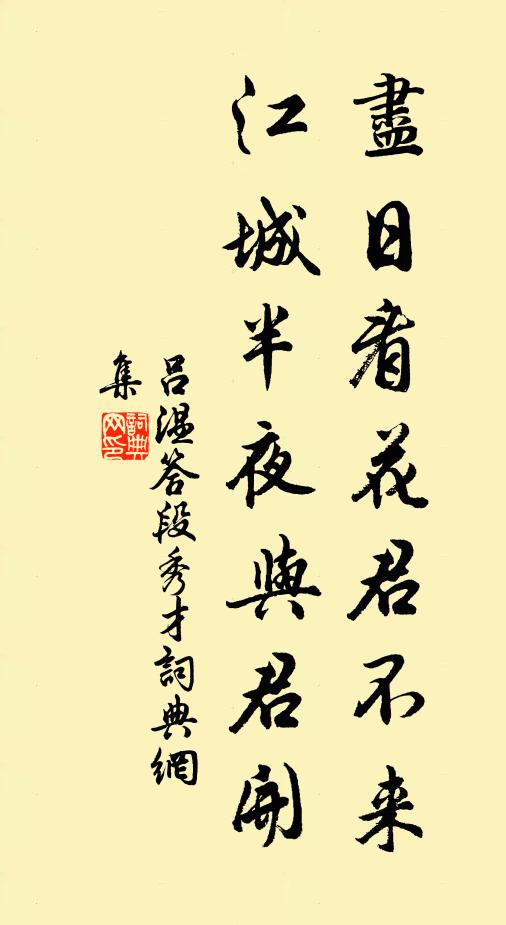 盡日看花君不来
江城半夜與君開
吕温答段秀才詞典網
集
詞典网印